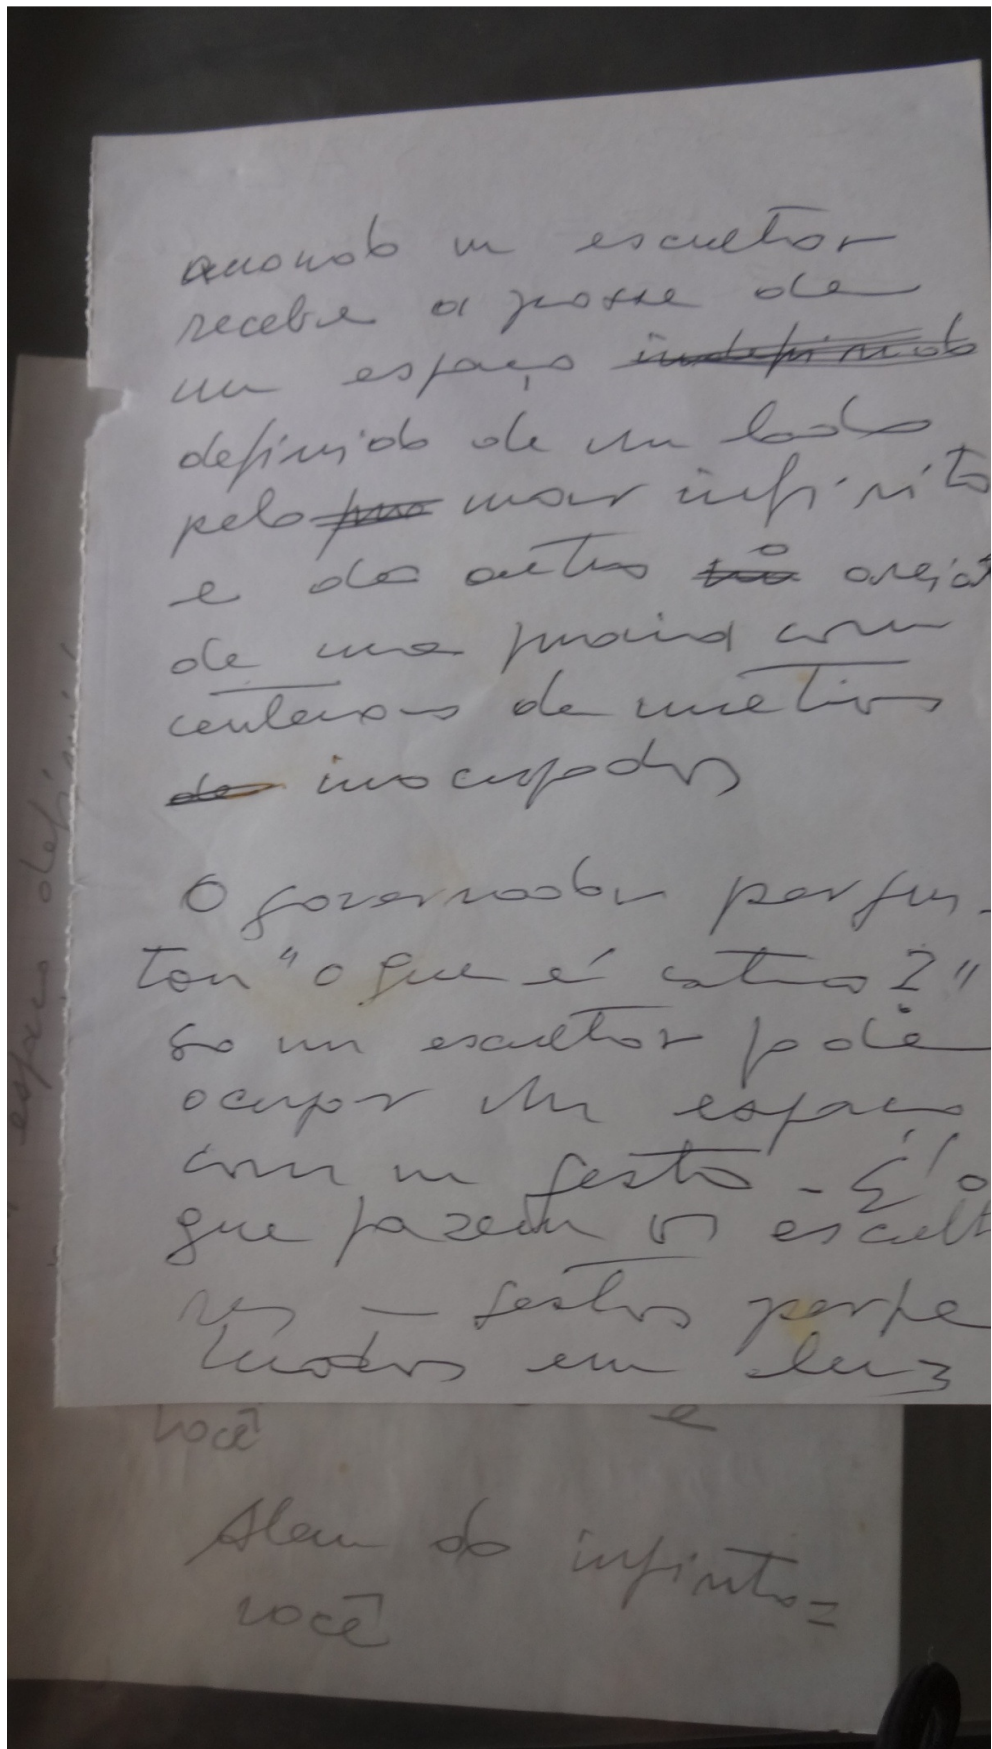 quando um escultor
recebe a posse de
um espaço indefinido
definido de um lado
pelo mar infinito
e do outro o areia
de uma praia com
centenas de metros
de inocupados
O governador pergun-
tou "o que é catua?"
so um escultor pode
ocupar um espaço
com um gesto - É o
que fazem os escult
res — gestos perpe
tuados em luz
você e
Alem do infinito =
você
espaço definí